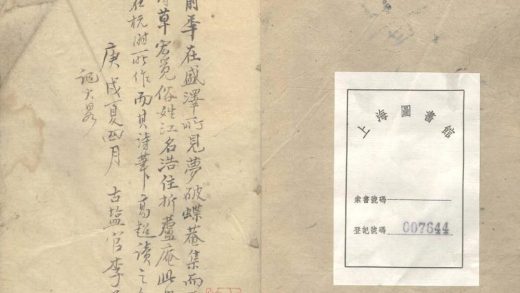 前年在盛澤所見夢破蝶菴集而
草窓覓俗姓江名浩住折蘆庵此
在杭州所作而其詩筆高超讀之
庚戌夏四月 古鹽官李
上海圖書館
索書號碼
登記號碼 007644